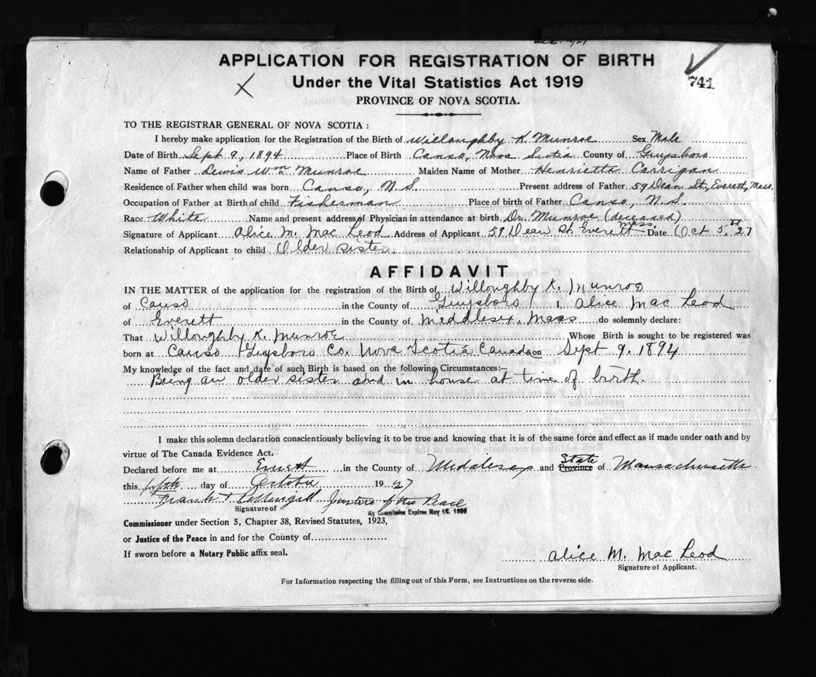 APPLICATION FOR REGISTRATION OF BIRTH
Under the Vital Statistics Act 1919
741
PROVINCE OF NOVA SCOTIA.
TO THE REGISTRAR GENERAL OF NOVA SCOTIA:
I hereby make application for the Registration of the Birth of Willoughby K. Munroe Sex Male
Date of Birth Sept 9, 1894 Place of Birth Canso, Nova Scotia County of Guysboro
Name of Father Lewis Wm Munroe Maiden Name of Mother Henrietta Corrigan
Residence of Father when child was born Canso, N.S. Present address of Father 59 Dean St, Everett, Mass.
Occupation of Father at Birth of child Fisherman Place of birth of Father Canso, N.S.
Race White Name and present address of Physician in attendance at birth Dr. Munroe (deceased)
Signature of Applicant Alice M. Mac Leod Address of Applicant 59 Dean St Everett Mass. Date Oct 5th 27
Relationship of Applicant to child Older sister
AFFIDAVIT
IN THE MATTER of the application for the registration of the Birth of Willoughby K. Munroe
of Canso in the County of Guysboro I Alice Mac Leod
of Everett in the County of Middlesex, Mass do solemnly declare:
That Willoughby K. Munroe Whose Birth is sought to be registered was
born at Canso Guysboro Co. Nova Scotia Canada on Sept 9, 1894
My knowledge of the fact and date of such Birth is based on the following Circumstances:—
Being an older sister and in house at time of birth.
I make this solemn declaration conscientiously believing it to be true and knowing that it is of the same force and effect as if made under oath and by
virtue of The Canada Evidence Act.
Declared before me at Everett in the County of Middlesex and State Province of Massachusetts
this fifth day of October 1927
Frank Justice of the Peace
Signature of My Commission Expires May 16,
Commissioner under Section 5, Chapter 38, Revised Statutes, 1923,
or Justice of the Peace in and for the County of
If sworn before a Notary Public affix seal. Alice M. Mac Leod
Signature of Applicant.
For Information respecting the filling out of this Form, see Instructions on the reverse side.